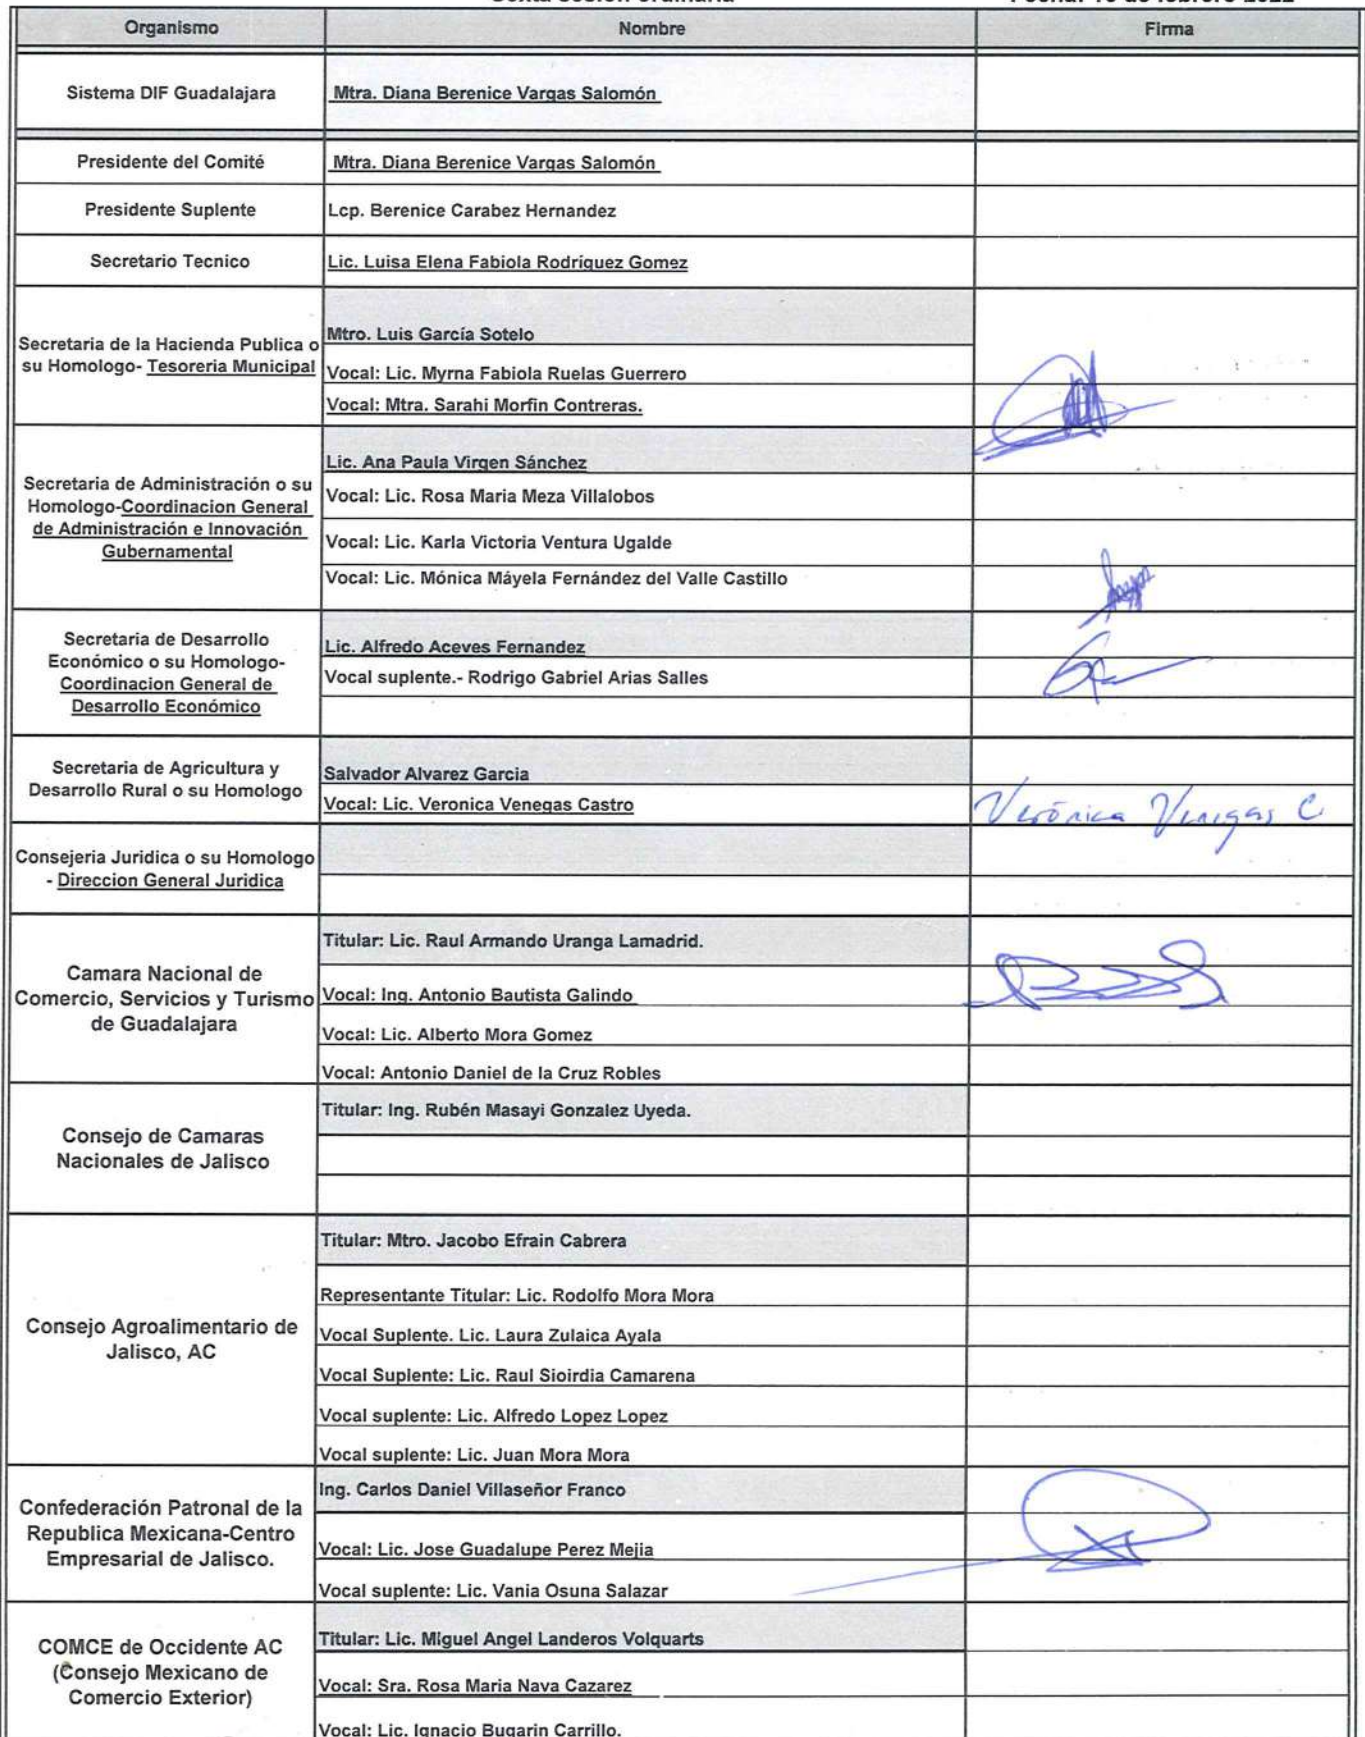 Organismo Nombre Firma
Sistema DIF Guadalajara Mtra. Diana Berenice Vargas Salomón
Presidente del Comité Mtra. Diana Berenice Vargas Salomón
Presidente Suplente Lcp. Berenice Carabez Hernandez
Secretario Tecnico Lic. Luisa Elena Fabiola Rodriguez Gomez
Secretaria de la Hacienda Publica o
su Homologo- Tesoreria Municipal
Mtro. Luis García Sotelo
Vocal: Lic. Myrna Fabiola Ruelas Guerrero
Vocal: Mtra. Sarahi Morfin Contreras.
Secretaria de Administración o su
Homologo-Coordinacion General
de Administración e Innovación
Gubernamental
Lic. Ana Paula Virgen Sánchez
Vocal: Lic. Rosa Maria Meza Villalobos
Vocal: Lic. Karla Victoria Ventura Ugalde
Vocal: Lic. Mónica Máyela Fernández del Valle Castillo
Secretaria de Desarrollo
Económico o su Homologo-
Coordinacion General de
Desarrollo Económico
Lic. Alfredo Aceves Fernandez
Vocal suplente.- Rodrigo Gabriel Arias Salles
Secretaria de Agricultura y
Desarrollo Rural o su Homologo
Salvador Alvarez Garcia
Vocal: Lic. Veronica Venegas Castro
Verónica Venegas C
Consejeria Juridica o su Homologo
- Direccion General Juridica
Camara Nacional de
Comercio, Servicios y Turismo
de Guadalajara
Titular: Lic. Raul Armando Uranga Lamadrid.
Vocal: Ing. Antonio Bautista Galindo
Vocal: Lic. Alberto Mora Gomez
Vocal: Antonio Daniel de la Cruz Robles
Consejo de Camaras
Nacionales de Jalisco
Titular: Ing. Rubén Masayi Gonzalez Uyeda.
Consejo Agroalimentario de
Jalisco, AC
Titular: Mtro. Jacobo Efrain Cabrera
Representante Titular: Lic. Rodolfo Mora Mora
Vocal Suplente. Lic. Laura Zulaica Ayala
Vocal Suplente: Lic. Raul Sioirdia Camarena
Vocal suplente: Lic. Alfredo Lopez Lopez
Vocal suplente: Lic. Juan Mora Mora
Confederación Patronal de la
Republica Mexicana-Centro
Empresarial de Jalisco.
Ing. Carlos Daniel Villaseñor Franco
Vocal: Lic. Jose Guadalupe Perez Mejia
Vocal suplente: Lic. Vania Osuna Salazar
COMCE de Occidente AC
(Consejo Mexicano de
Comercio Exterior)
Titular: Lic. Miguel Angel Landeros Volquarts
Vocal: Sra. Rosa Maria Nava Cazarez
Vocal: Lic. Ignacio Bugarin Carrillo.